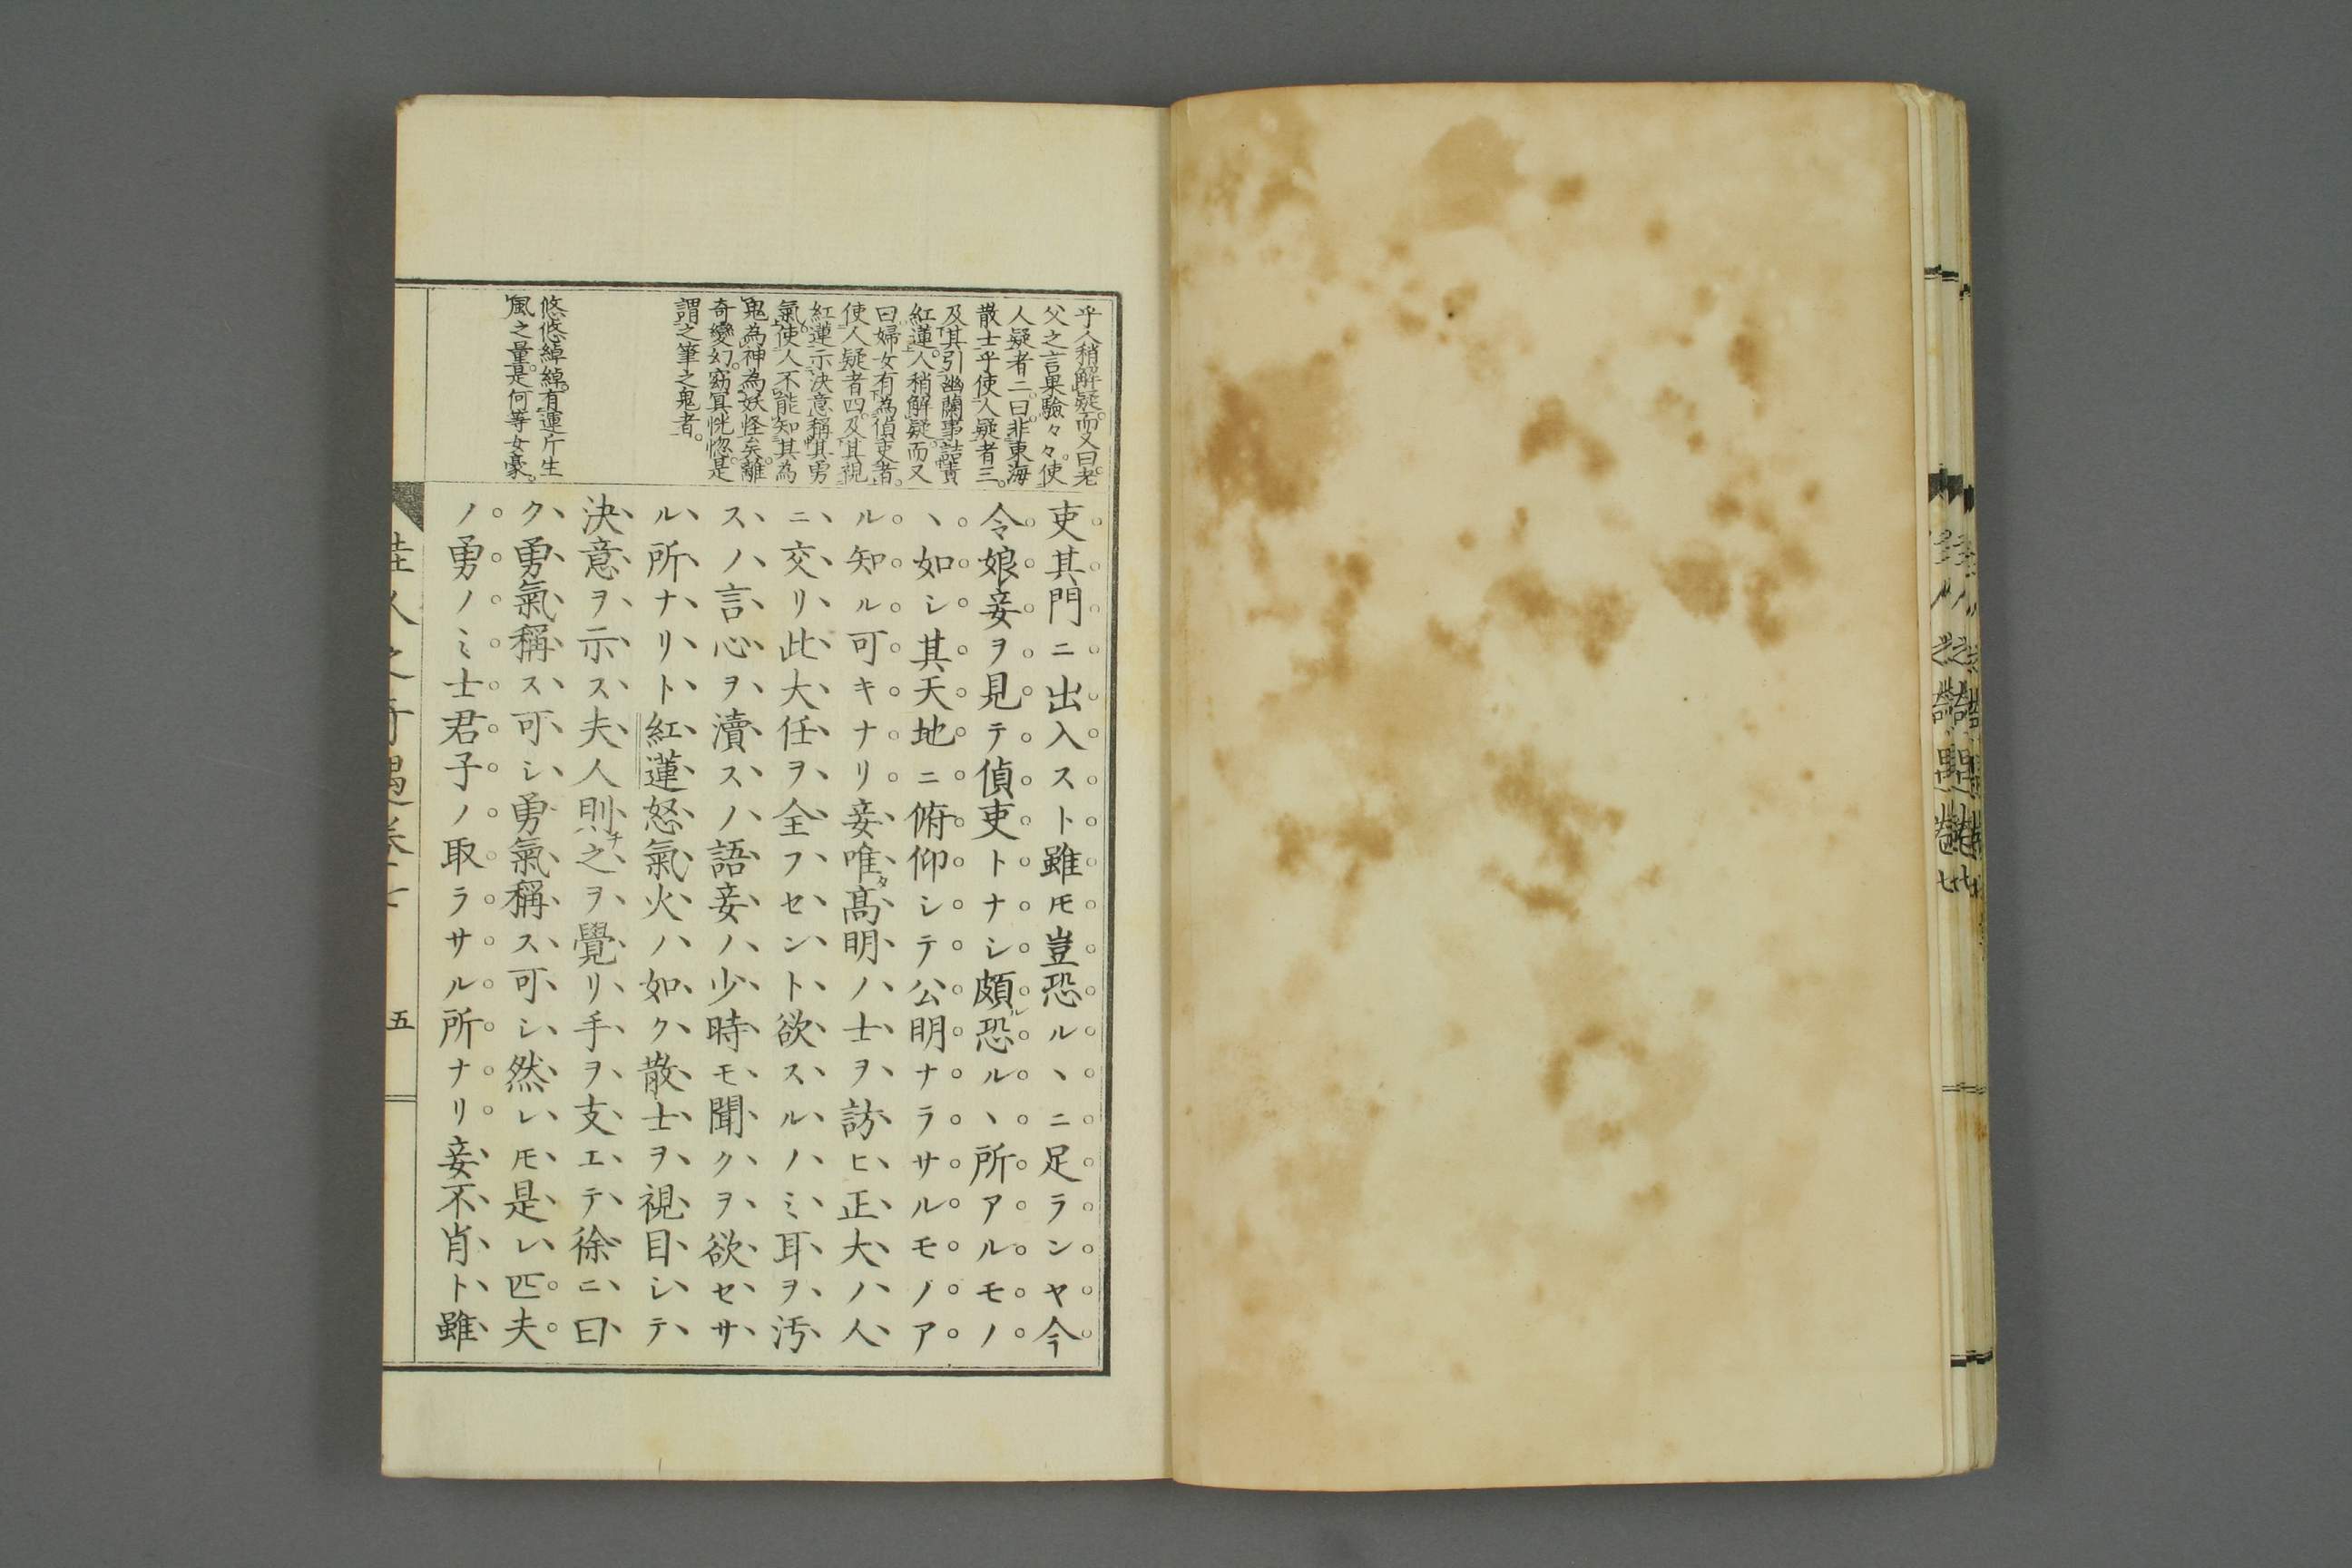 乎人稍解疑而又曰老
父之言果驗々々使
人疑者二曰非東海
散士乎使人疑者三
及其引幽蘭事詰責
紅蓮人稍解疑而又
曰婦女有為偵吏者
使人疑者四及其視
紅蓮示決意稱其勇
氣使人不能知其為
鬼為神為妖怪矣離
奇變幻窈冥恍惚是
謂之筆之鬼者
悠悠綽綽有運斤生
風之量是何等女豪
吏其門ニ出入スト雖𪜈豈恐ルヽニ足ランヤ今
令娘妾ヲ見テ偵吏トナシ頗ル恐ルヽ所アルモノ
ヽ如シ其天地ニ俯仰シテ公明ナラサルモノア
ル知ル可キナリ妾唯タ高明ノ士ヲ訪ヒ正大ノ人
ニ交リ此大任ヲ全フセント欲スルノミ耳ヲ汚
スノ言心ヲ瀆スノ語妾ノ少時モ聞クヲ欲セサ
ル所ナリト紅蓮怒氣火ノ如ク散士ヲ視目シテ
決意ヲ示ス夫人則チ之ヲ覺リ手ヲ支エテ徐ニ曰
ク勇氣稱ス可シ勇氣稱ス可シ然レ𪜈是レ匹夫
ノ勇ノミ士君子ノ取ラサル所ナリ妾不肖ト雖
佳人之奇遇卷七
五